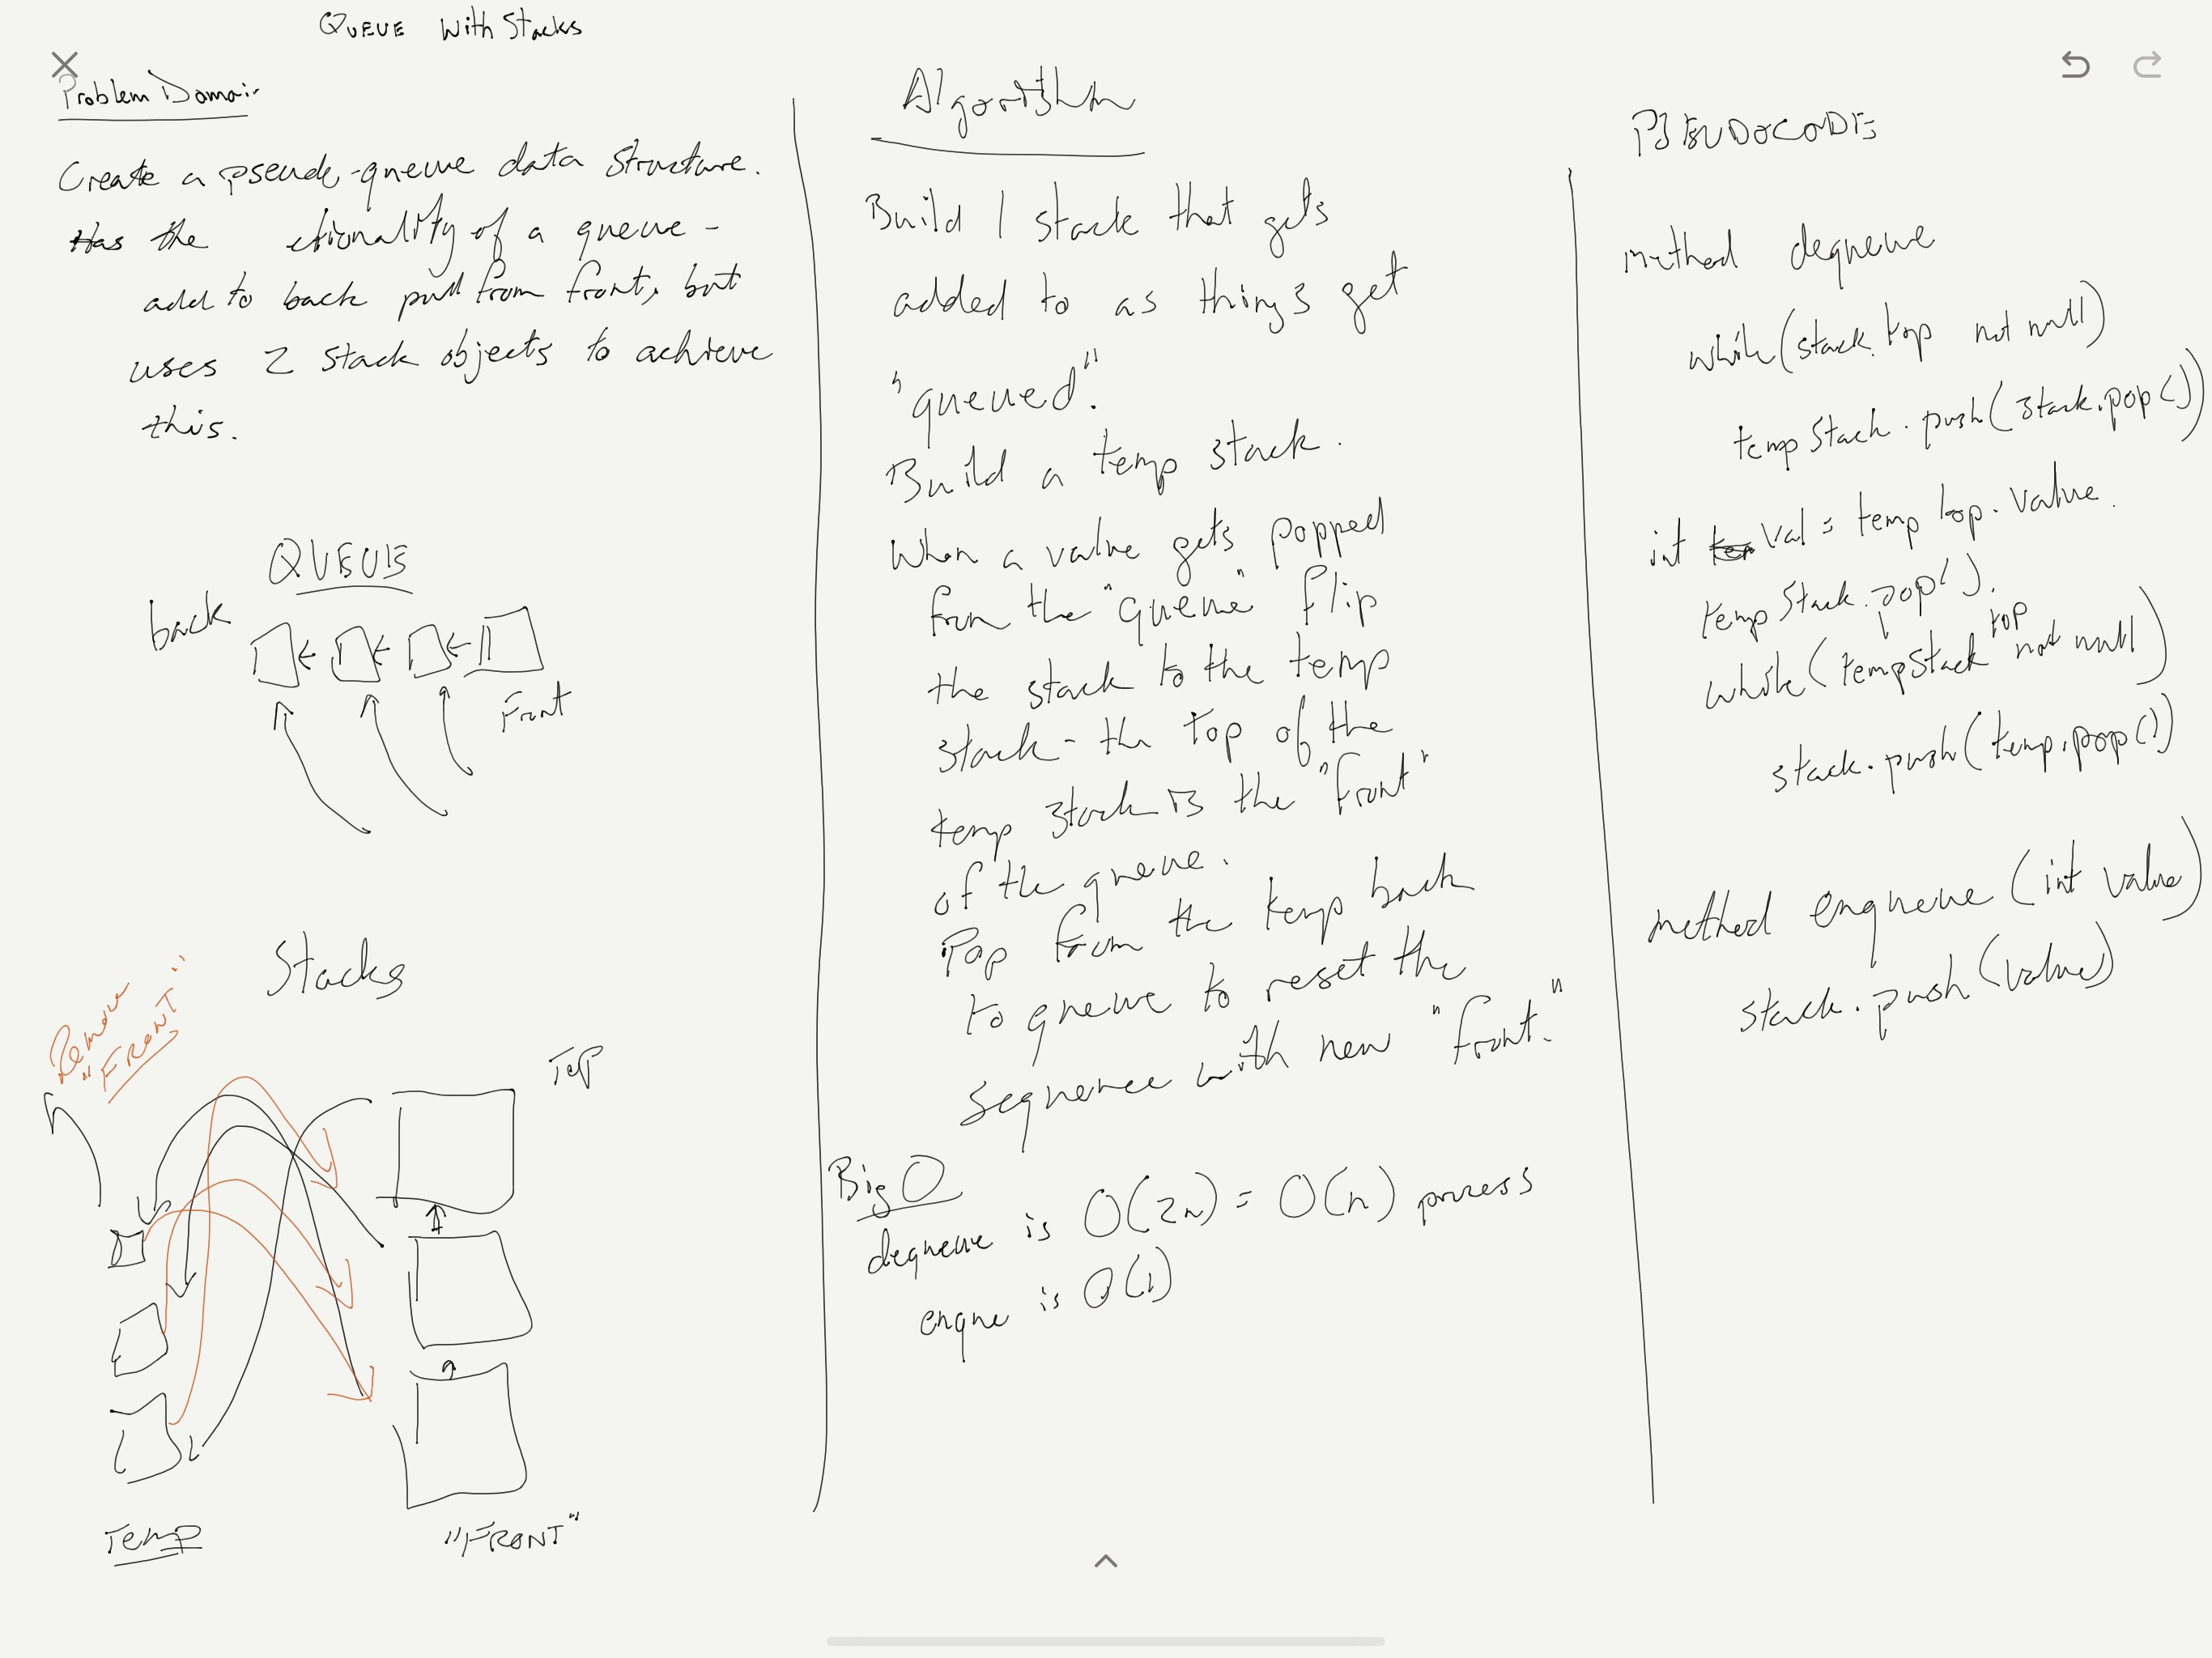 QUEUE With Stacks
Problem Domain
Create a pseudo-queue data structure.
Has the ctionality of a queue -
add to back pull from front, but
uses 2 stack objects to achieve
this.
QUEUE
back
Front
Stacks
Remove
"FRONT"
Top
Temp
"FRONT"
Algorithm
Build 1 stack that gets
added to as things get
"queued".
Build a temp stack.
When a value gets popped
from the "queue" flip
the stack to the temp
stack - the top of the
temp stack is the "front"
of the queue.
Pop from the temp back
to queue to reset the
sequence with new "front."
Big O
dequeue is O(2n) = O(n) process
enque is O(1)
PSEUDOCODE
method dequeue
while(stack.top not null)
tempStack.push(stack.pop())
int val = temp top.value.
tempStack.pop().
while(tempStack top not null)
stack.push(temp.pop())
method enqueue (int value)
stack.push(value)